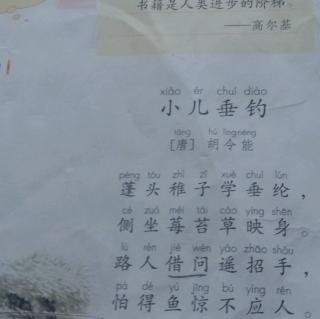 书籍是人类进步的阶梯。
——高尔基
xiǎo ér chuí diào
小儿垂钓
táng hú lìng néng
[唐] 胡令能
péng tóu zhì zǐ xué chuí lún
蓬头稚子学垂纶，
cè zuò méi tái cǎo yìng shēn
侧坐莓苔草映身。
lù rén jiè wèn yáo zhāo shǒu
路人借问遥招手，
pà dé yú jīng bù yìng rén
怕得鱼惊不应人。